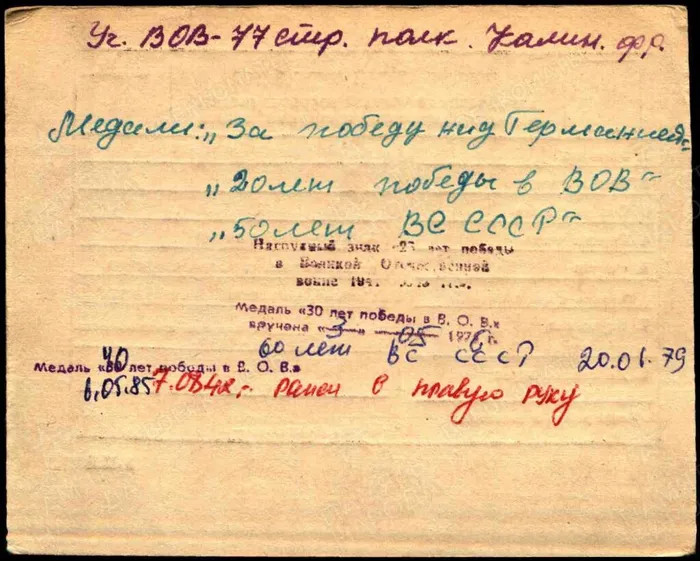 Уч. ВОВ-77 стр. полк. Калин. фр.
Медали: „За победу над Германией"
„20 лет победы в ВОВ"
„50 лет ВС СССР"
Нагрудный знак «25 лет победы
в Великой Отечественной
войне 194
Медаль «30 лет победы в В. О. В.»
вручена «3» 05 1976 г.
60 лет ВС СССР 20.01.79
40
Медаль «30 лет победы в В. О. В.»
6.05.85 7.08.42 г. ранен в правую руку